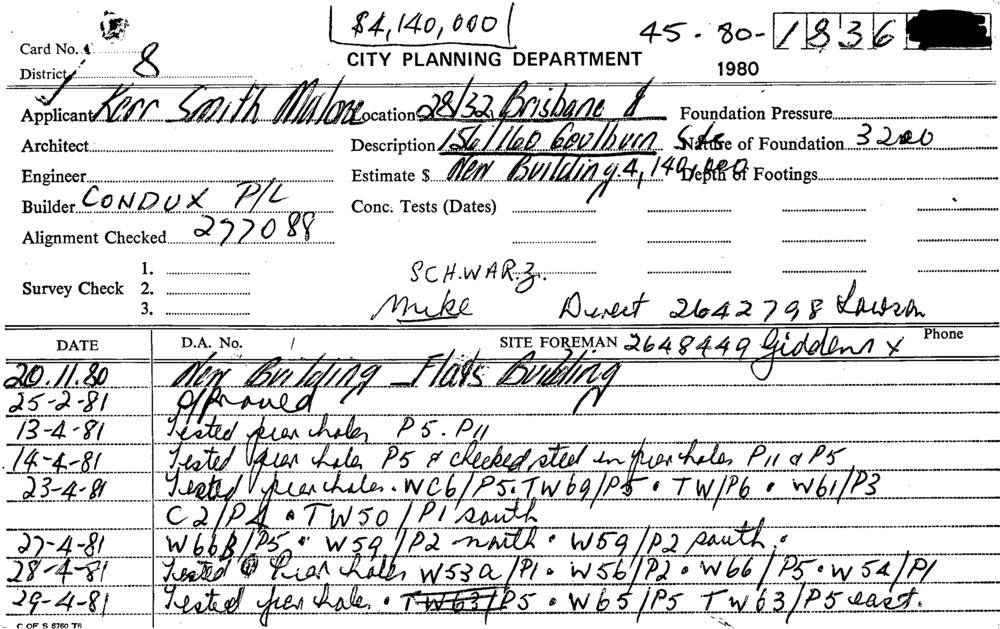 $4,140,000
45-80-1836
Card No. CITY PLANNING DEPARTMENT
District 8 1980
Applicant Kerr Smith Malone Location 28/32 Brisbane & Foundation Pressure
Architect Description 156/160 Goulburn Sts Nature of Foundation 3200
Engineer Estimate $ New Building 4,140,000 Depth of Footings
Builder CONDUX P/L Conc. Tests (Dates)
Alignment Checked 277088
1.
Survey Check 2. SCHWARZ.
3. Mike Direct 2642798 Lawson
DATE D.A. No. / SITE FOREMAN 2648449 Giddens x Phone
20.11.80 New Building - Flats Building
25-2-81 Approved
13-4-81 Tested pier holes P5. P11
14-4-81 Tested pier holes P5 & checked steel in pier holes P11 & P5
23-4-81 Tested pier holes. WC6/P5. TW69/P5. TW/P6. W61/P3
C2/P4. TW50/P1 south
27-4-81 W66B/P5. W59/P2 north. W59/P2 south.
28-4-81 Tested Pier holes W53a/P1. W56/P2. W66/P5. W54/P1
29-4-81 Tested pier holes. TW63/P5. W65/P5 TW63/P5 east.
C OF S 6760 T6